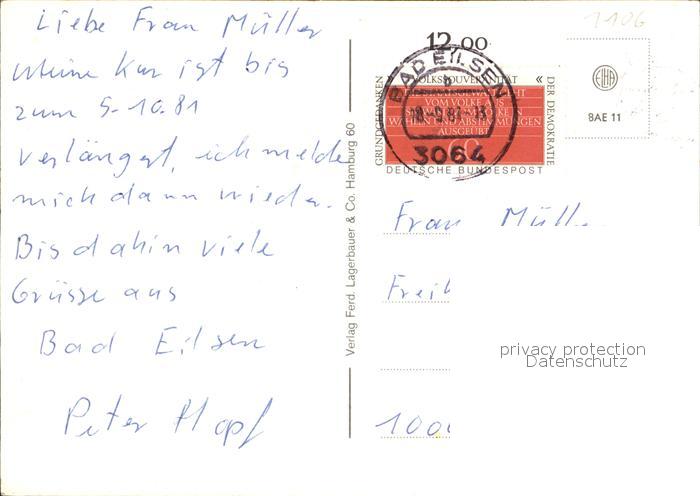 Liebe Frau Müller
Meine Kur ist bis
zum 5.10.81
verlängert, ich melde
mich dann wieder.
Bis dahin viele
Grüsse aus
Bad Eilsen
Peter Hopf
Verlag Ferd. Lagerbauer & Co. Hamburg 60
1106
12.00
BAD EILSEN
3064
GRUNDGEDANKEN
VOLKSSOUVERÄNITÄT «
DER DEMOKRATIE
VOM VOLKE AUS
WAHLEN UND ABSTIMMUNGEN
AUSGEÜBT
DEUTSCHE BUNDESPOST
BAE 11
Frau Müll
Frei
privacy protection
Datenschutz
100